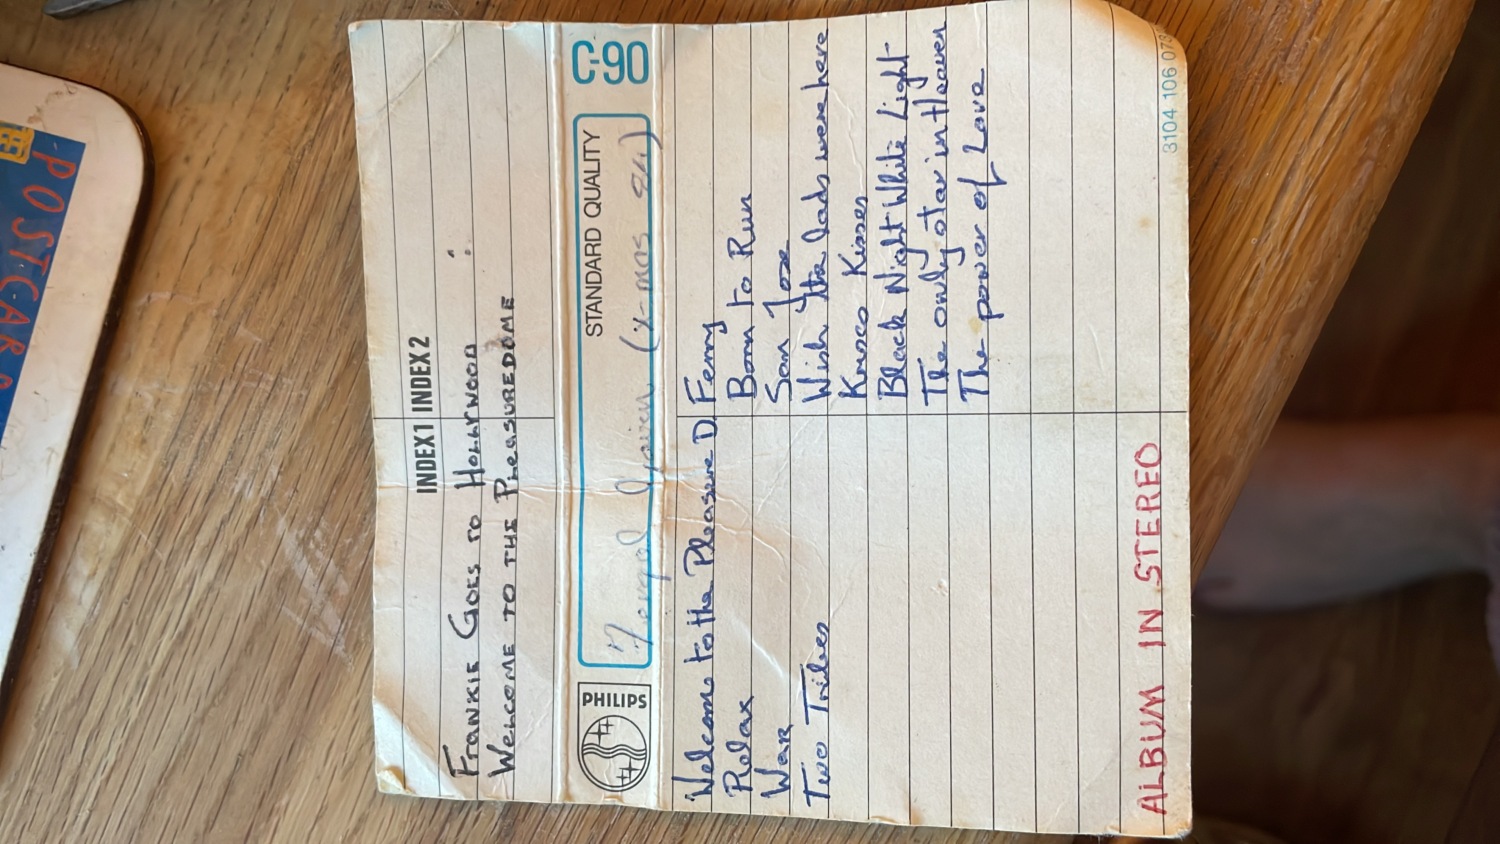 INDEX 1 INDEX 2
FRANKIE GOES TO HOLLYWOOD :
WELCOME TO THE PLEASUREDOME
PHILIPS
STANDARD QUALITY
C-90
(x-mas 84)
Welcome to the Pleasure D.
Relax
War
Two Tribes
Ferry
Born to Run
San Jose
Wish the lads were here
Krisco Kisses
Black Night White Light
The only star in Heaven
The power of Love
ALBUM IN STEREO
3104 106 078
POSTCAR